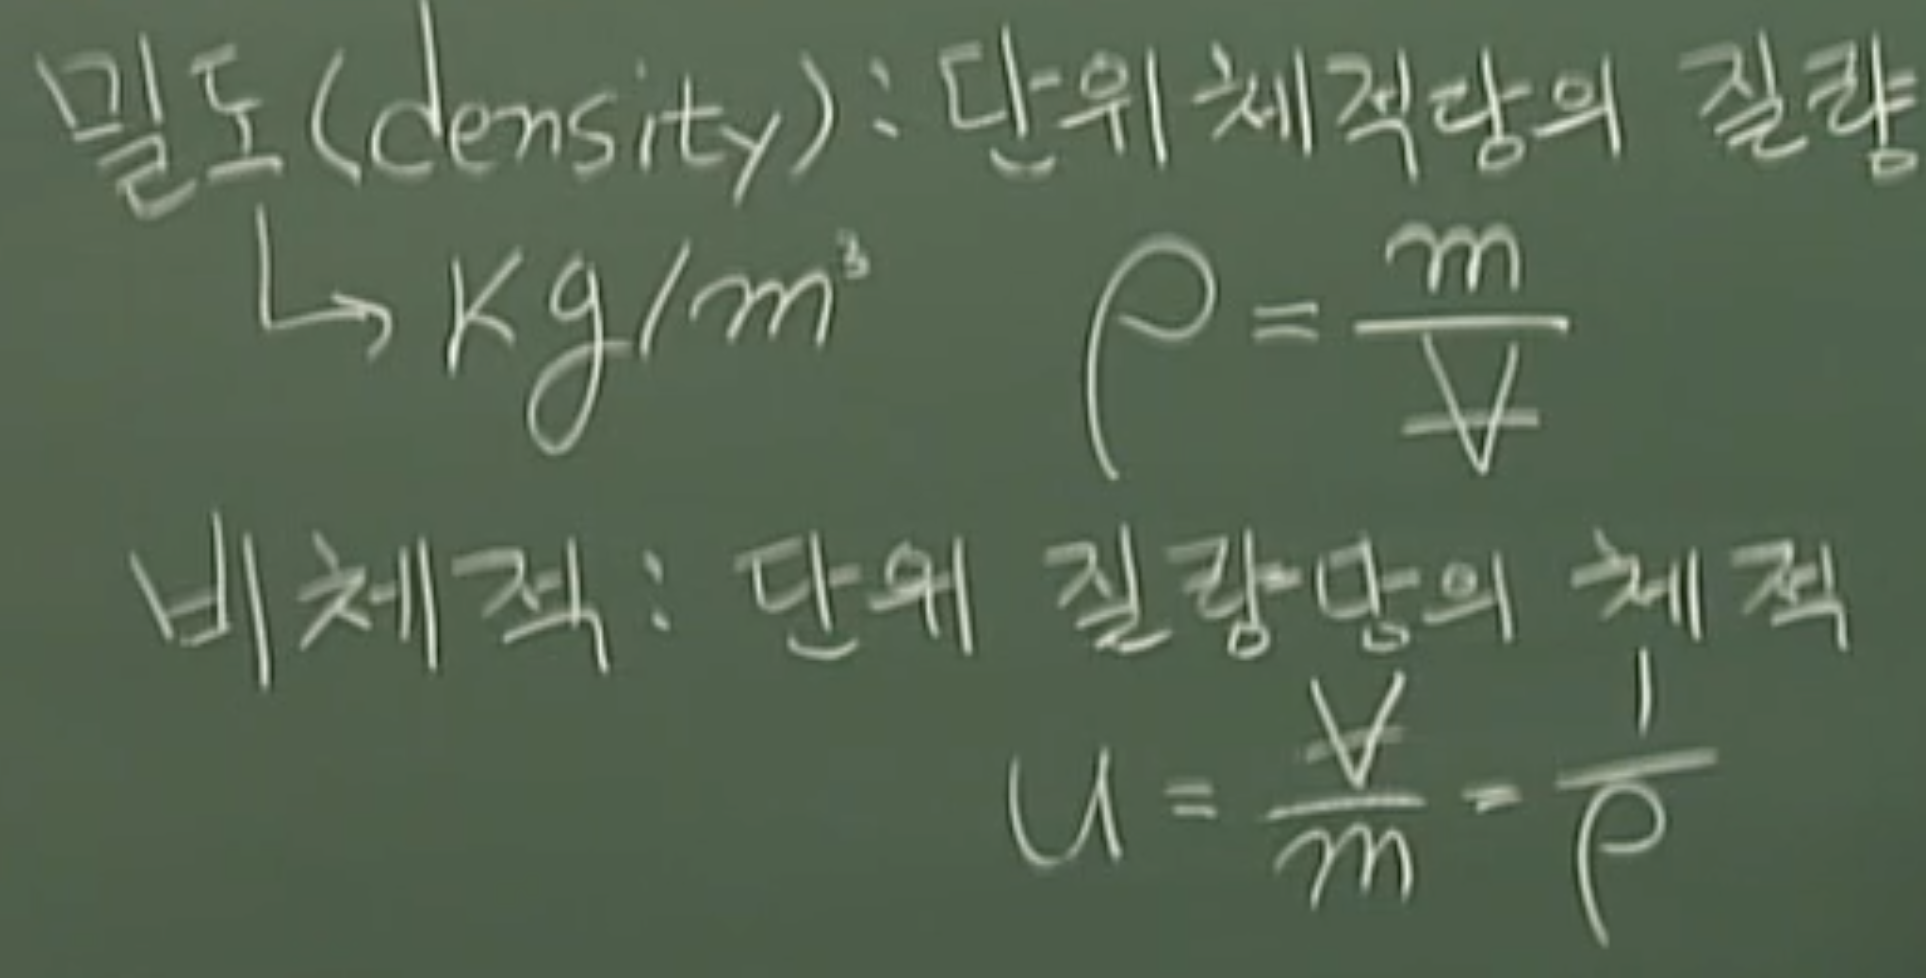 밀도(density): 단위체적당의 질량
↳ Kg/m³ ρ = m/V
비체적: 단위 질량당의 체적
u = V/m = 1/ρ